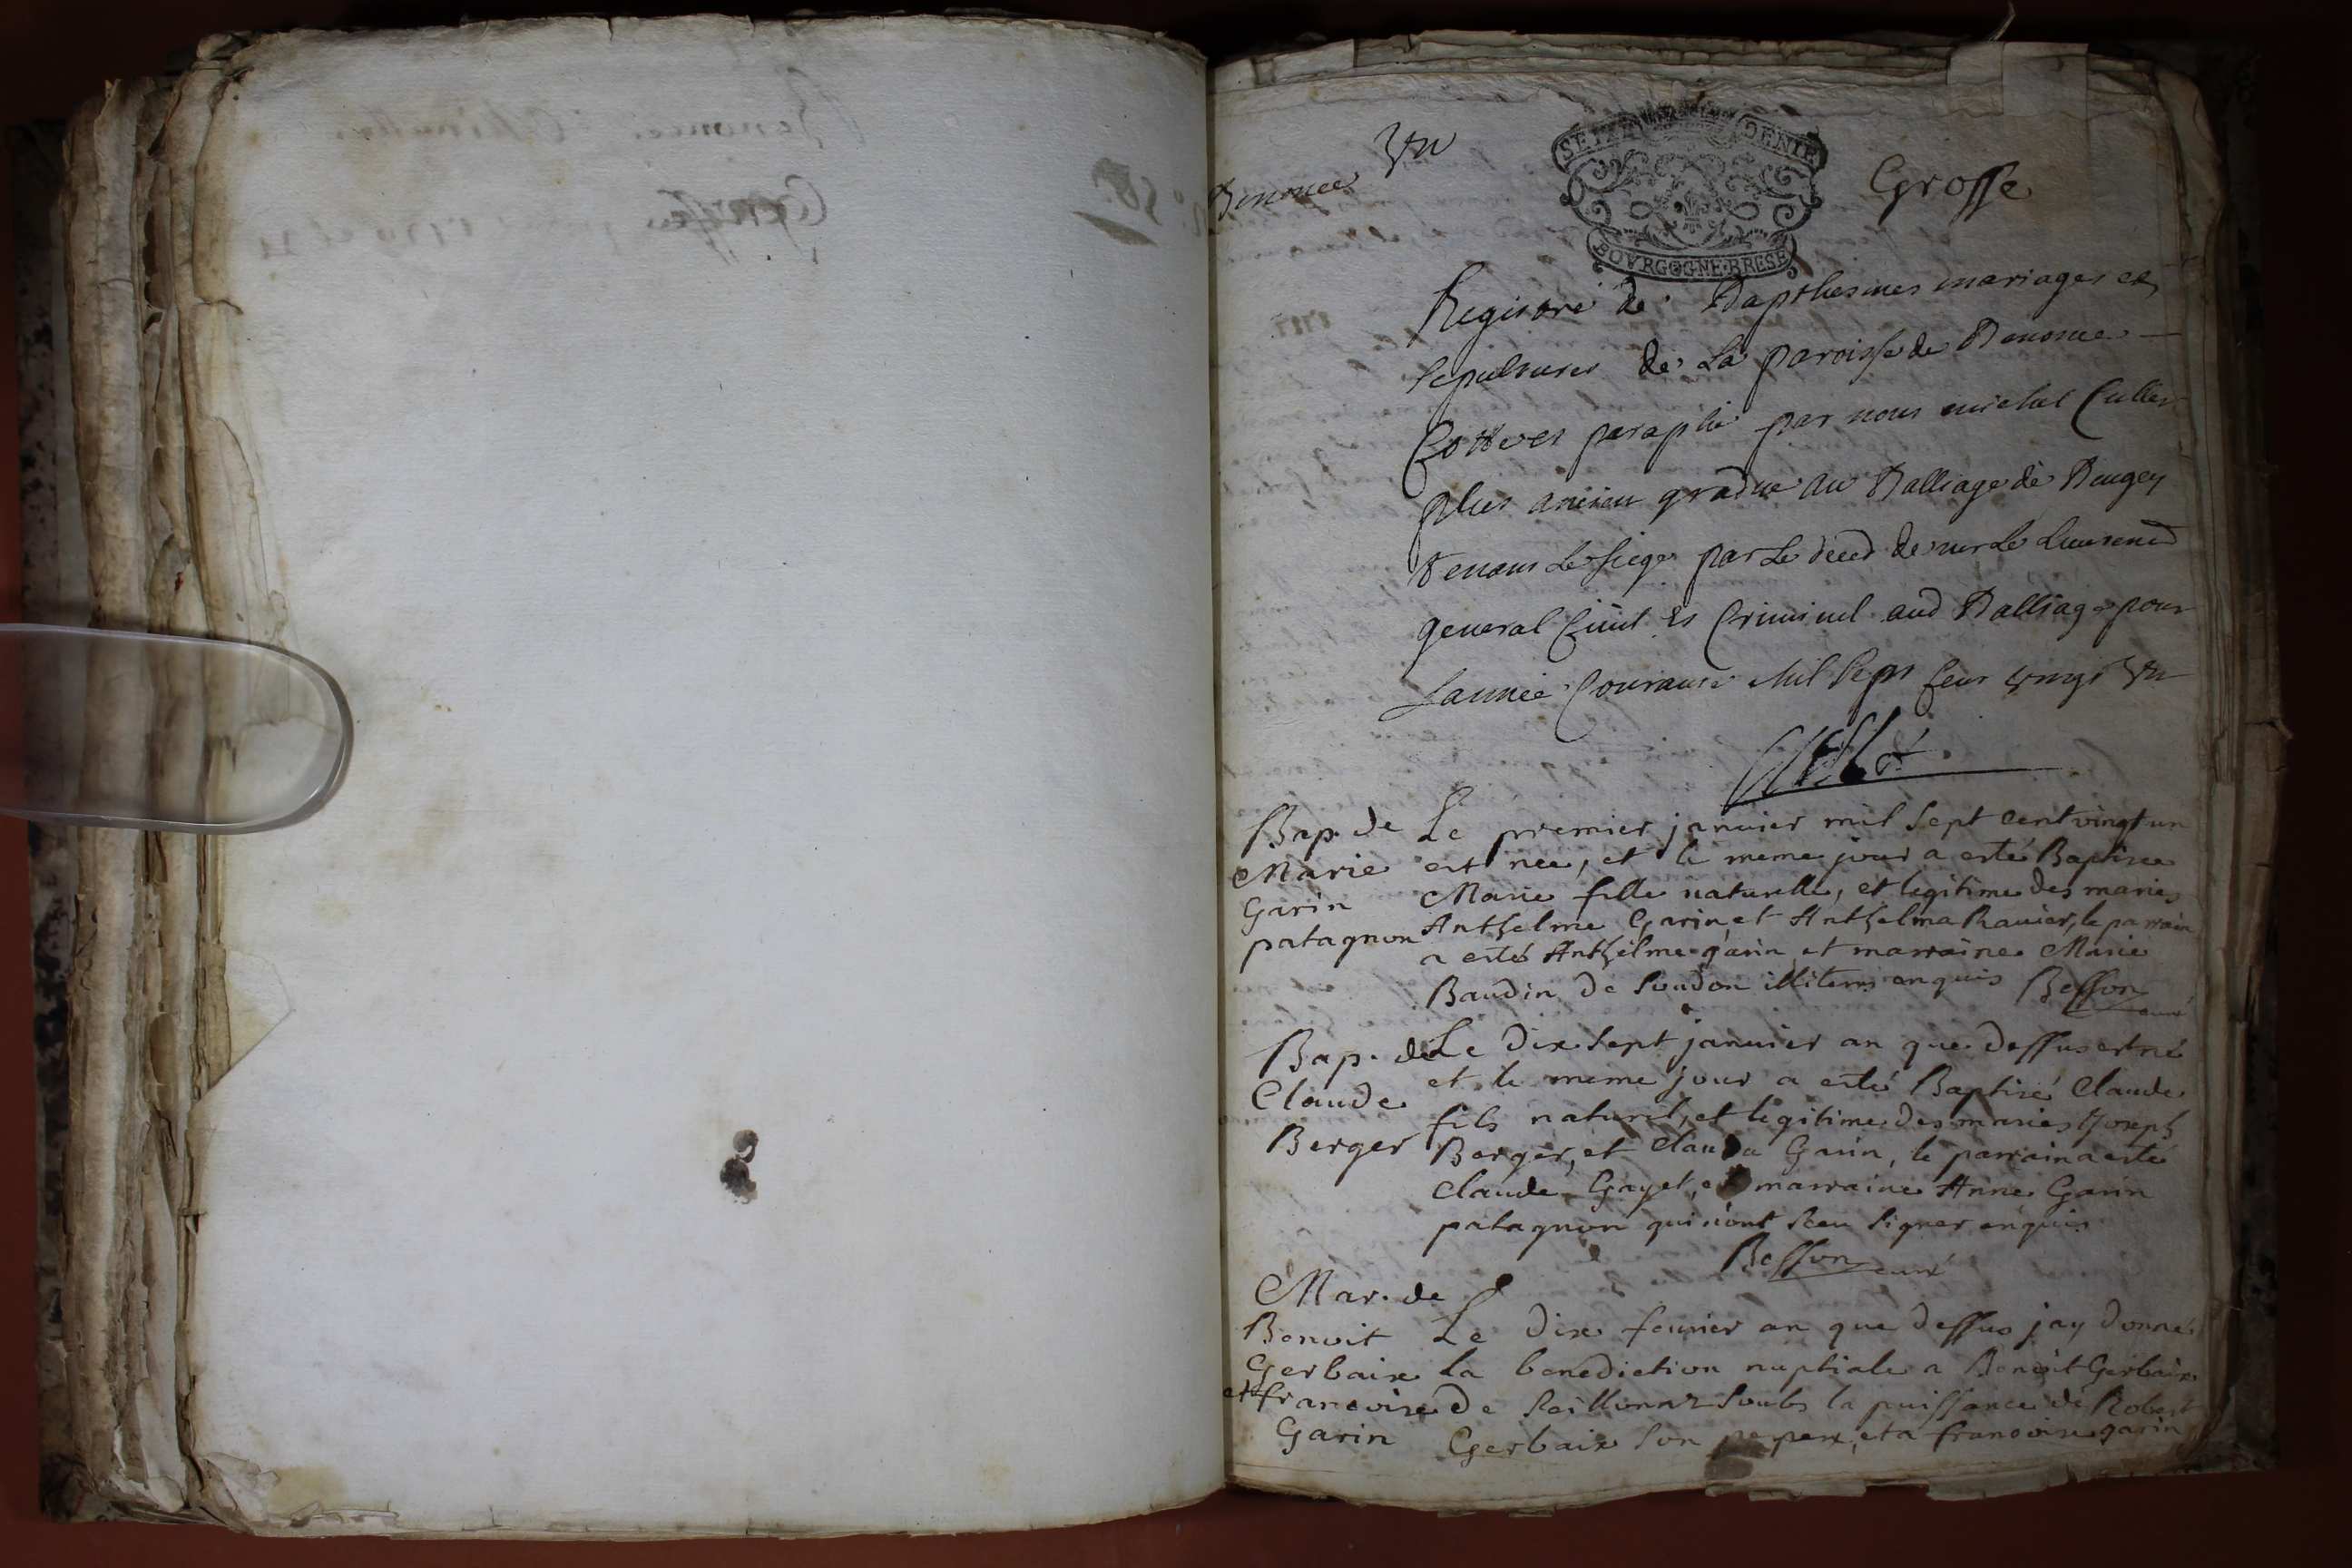 Benonce
Vn
SEIZE DENIE
BOVRGOGNE·BRESE
Grosse
Registre de Bapthesmes mariages et
sepultures de La paroisse de Benonce
Cotté et paraphé par nous michel Cullet
plus ancien gradué au Balliage de Beugey
tenant Le siege par Le deced de mr Le Lieutenend
general Civil et Criminel aud Balliage pour
Lannée Courante Mil Sept Cent vingt Vn
Cullet
Bap. de
Marie
Garin
patagnon
Le premier januier mil sept cent vingt un
est née, et le meme jour a esté Baptisée
Marie fille naturelle, et legitime des mariés
Anthelme Garin, et Anthelma Rauier, le parrain
a esté Anthelme garin et marraine Marie
Baudin de Soudon illiterés enquis Besson
curé
Bap. de
Claude
Berger
Le dix sept januier an que dessus est né
et le meme jour a esté Baptisé Claude
fils naturel, et legitime des mariés Joseph
Berger, et Clauda Garin, le parrain a esté
Claude Gayet, et marraine Anne Garin
patagnon qui n'ont sceu signer enquis
Besson curé
Mar. de
Benoit
Gerbaix
et francoise
Garin
Le dix feurier an que dessus jay donné
la benediction nuptiale a Benoit Gerbaix
de Seillonnaz soubs la puissance de Robert
Gerbaix son pere, et a francoise garin